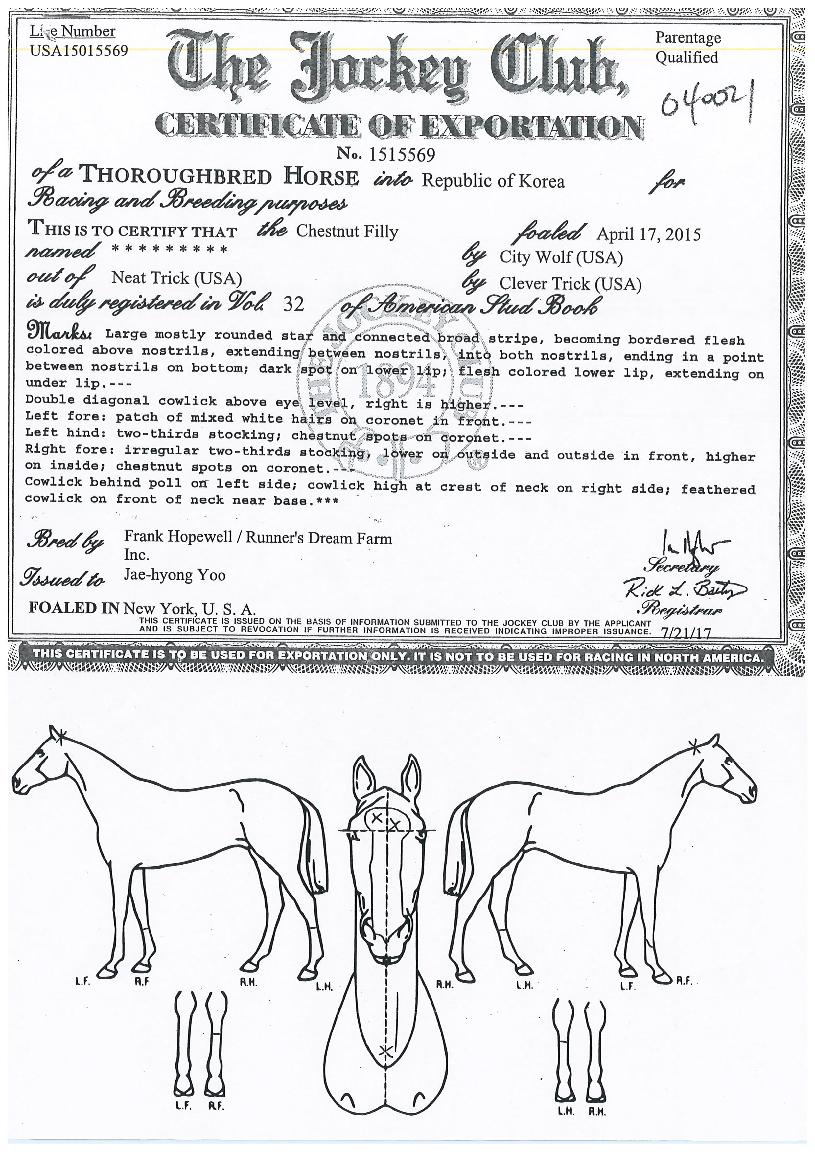 Life Number
USA15015569
Parentage
Qualified
The Jockey Club,
040021
CERTIFICATE OF EXPORTATION
No. 1515569
of a THOROUGHBRED HORSE into Republic of Korea for
Racing and Breeding purposes
THIS IS TO CERTIFY THAT the Chestnut Filly foaled April 17, 2015
named * * * * * * * * * by City Wolf (USA)
out of Neat Trick (USA) by Clever Trick (USA)
is duly registered in Vol. 32 of American Stud Book
THE JOCKEY CLUB
1894
®
Marks: Large mostly rounded star and connected broad stripe, becoming bordered flesh
colored above nostrils, extending between nostrils, into both nostrils, ending in a point
between nostrils on bottom; dark spot on lower lip; flesh colored lower lip, extending on
under lip.---
Double diagonal cowlick above eye level, right is higher.---
Left fore: patch of mixed white hairs on coronet in front.---
Left hind: two-thirds stocking; chestnut spots on coronet.---
Right fore: irregular two-thirds stocking, lower on outside and outside in front, higher
on inside; chestnut spots on coronet.---
Cowlick behind poll on left side; cowlick high at crest of neck on right side; feathered
cowlick on front of neck near base.***
Bred by Frank Hopewell / Runner's Dream Farm
Inc.
Secretary
Issued to Jae-hyong Yoo
Rick L. Bailey
Registrar
FOALED IN New York, U. S. A.
THIS CERTIFICATE IS ISSUED ON THE BASIS OF INFORMATION SUBMITTED TO THE JOCKEY CLUB BY THE APPLICANT
AND IS SUBJECT TO REVOCATION IF FURTHER INFORMATION IS RECEIVED INDICATING IMPROPER ISSUANCE. 7/21/17
THIS CERTIFICATE IS TO BE USED FOR EXPORTATION ONLY. IT IS NOT TO BE USED FOR RACING IN NORTH AMERICA.
L.F. R.F R.H. L.H. R.H. L.H. L.F. R.F.
L.F. R.F. L.H. R.H.